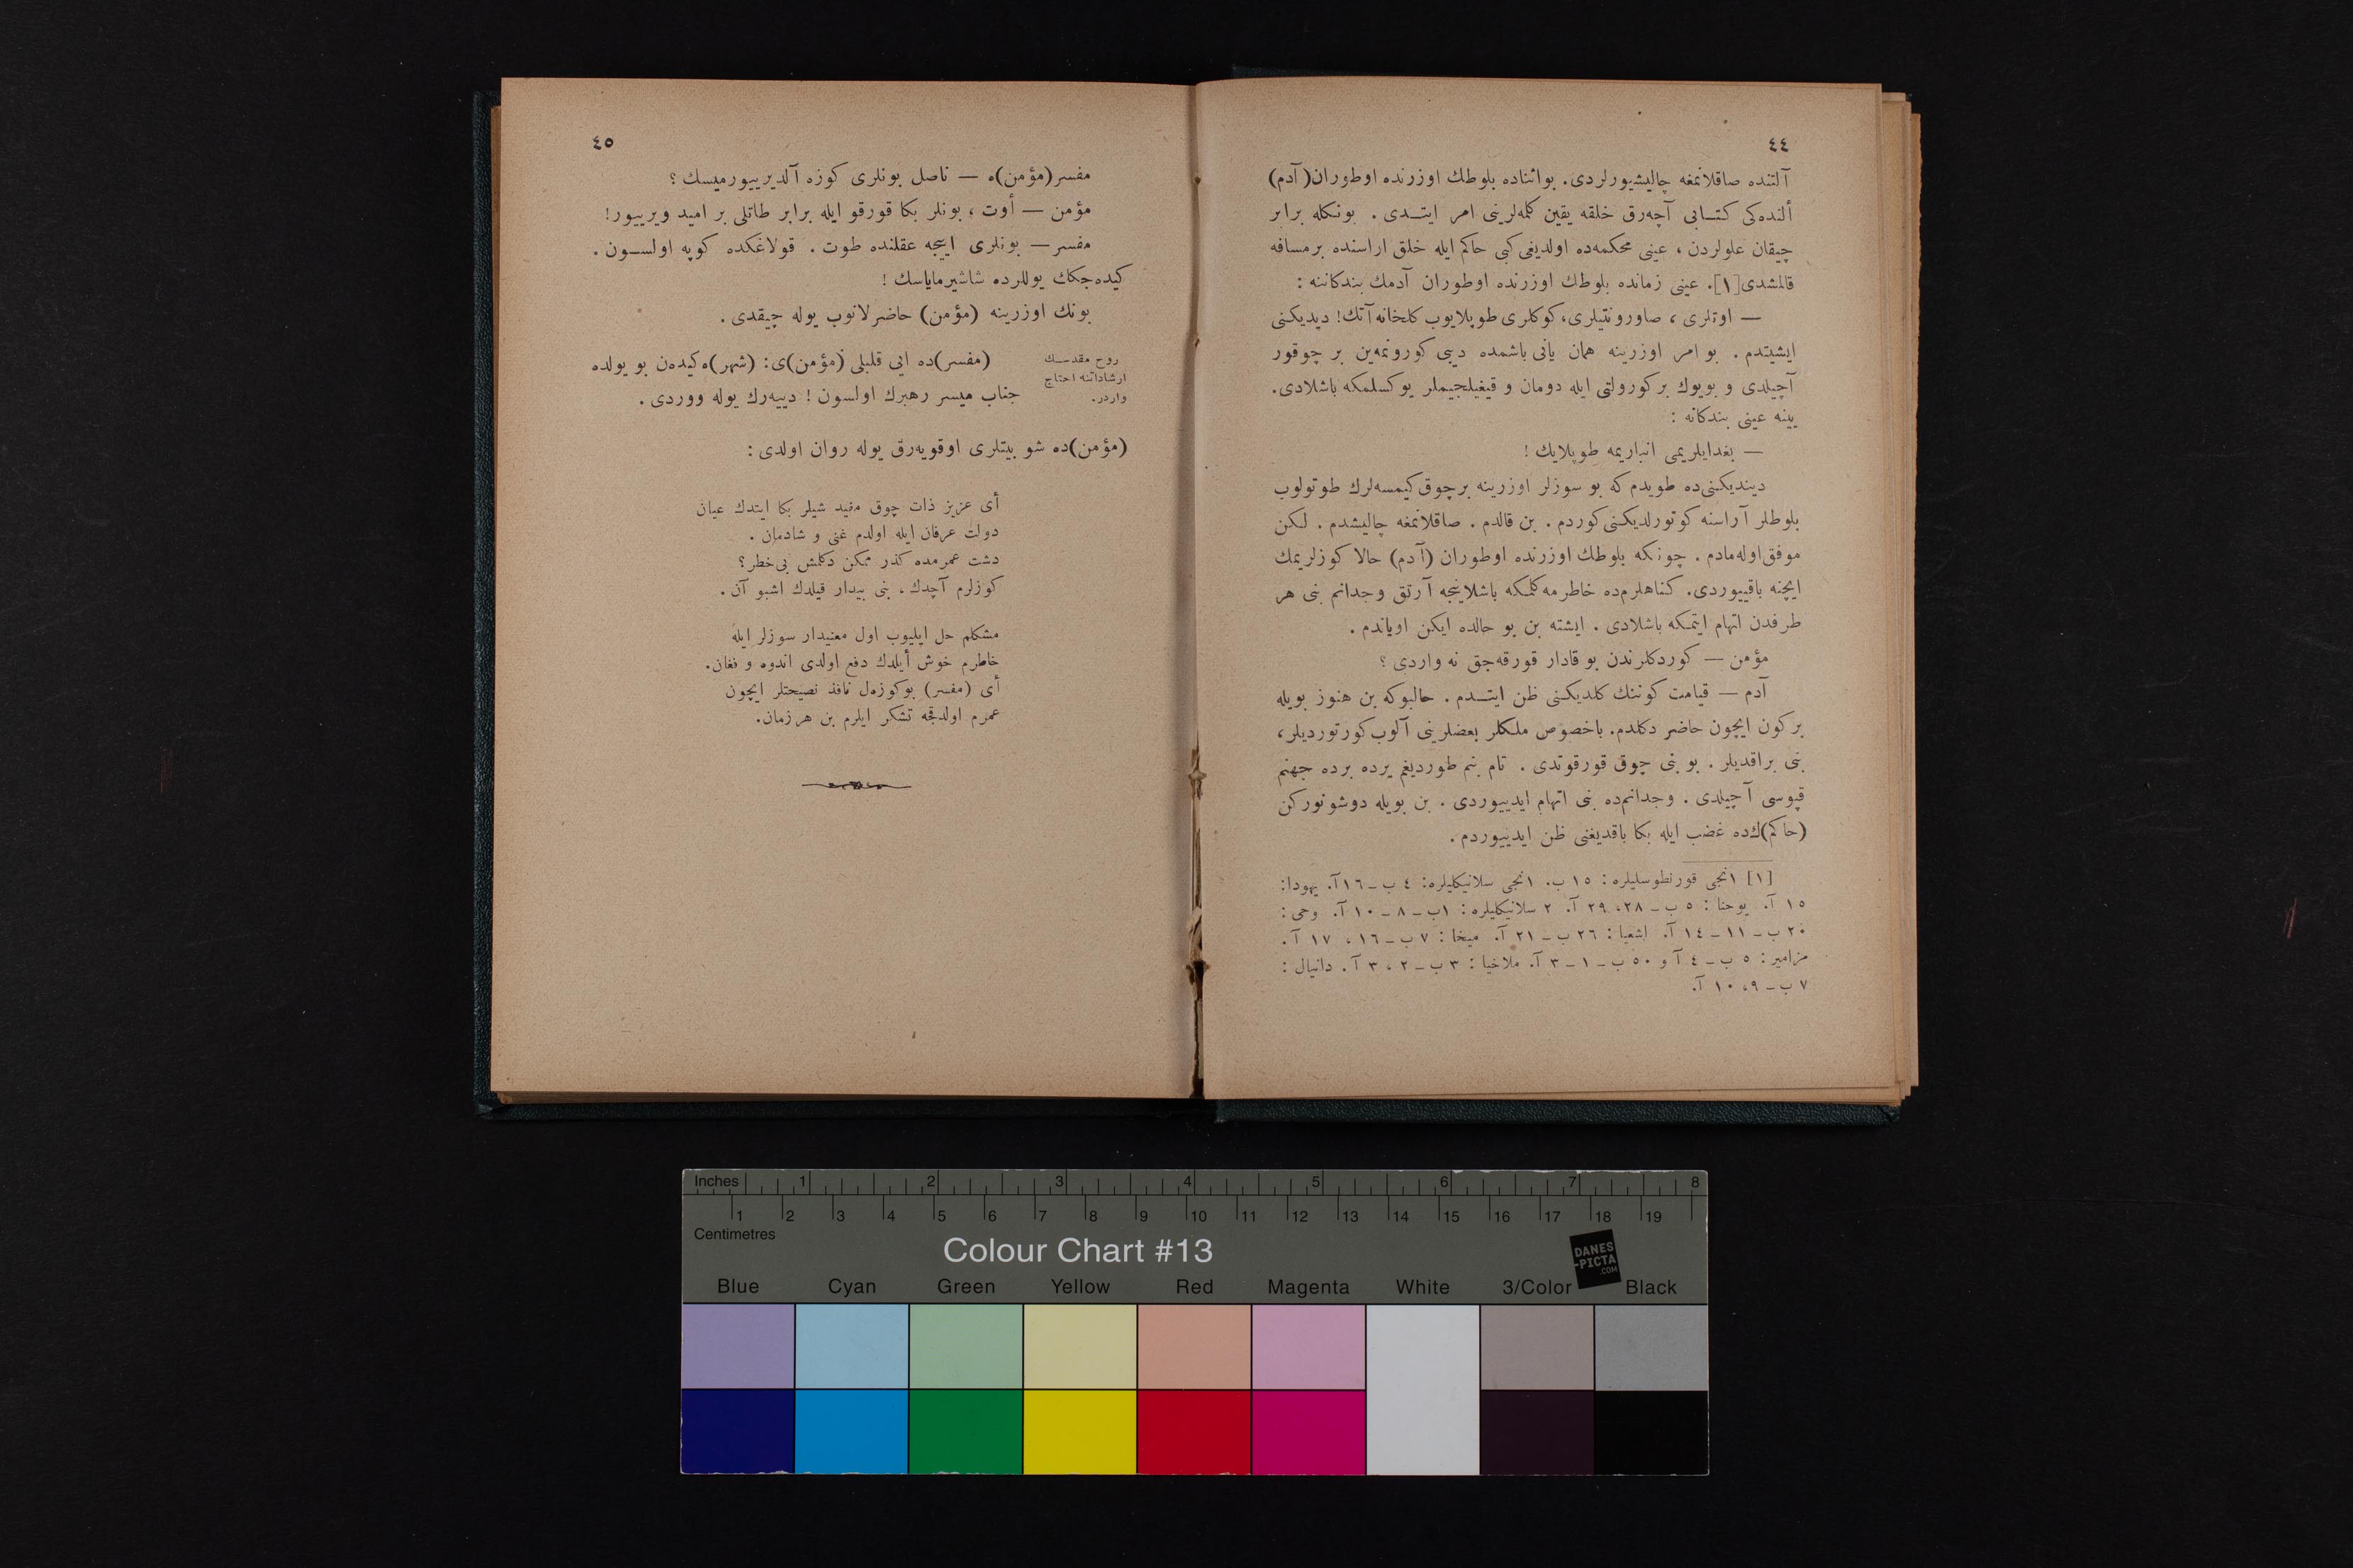 ٤٤
آلتنده صاقلانمغه چاليشيورلردی. بواثناده بلوطك اوزرنده اوطوران (آدم)
ألنده‌كی كتابی آچه‌رق خلقه يقين كلمه‌لرينی امر ايتدی . بونكله برابر
چيقان علولردن ، عينی محكمه‌ده اولديغی كبی حاكم ايله خلق اراسنده برمسافه
قالمشدی[١]. عينی زمانده بلوطك اوزرنده اوطوران آدمك بندكاننه :
— اوتلری ، صاورونتيلری، كوكلری طوپلايوب كلخانه آتك! ديديكنی
ايشيتدم . بو امر اوزرينه همان يانی باشمده ديبی كورونمه‌ين بر چوقور
آچيلدی و بويوك بر كورولتی ايله دومان و قيغيلجيملر يوكسلمكه باشلادی.
يينه عينی بندكانه :
— بغدايلريمی انباريمه طوپلايك !
دينديكنی‌ده طويدم كه بو سوزلر اوزرينه برچوق كيمسه‌لرك طوتولوب
بلوطلر آراسنه كوتورلديكنی كوردم . بن قالدم . صاقلانمغه چاليشدم . لكن
موفق اوله‌مادم . چونكه بلوطك اوزرنده اوطوران (آدم) حالا كوزلريمك
ايچنه باقييوردی. كناهلرم‌ده خاطرمه كلمكه باشلاينجه آرتق وجدانم بنی هر
طرفدن اتهام ايتمكه باشلادی . ايشته بن بو حالده ايكن اوياندم .
مؤمن — كوردكلرندن بو قادار قورقه‌جق نه واردی ؟
آدم — قيامت كوننك كلديكنی ظن ايتدم . حالبوكه بن هنوز بويله
بركون ايچون حاضر دكلدم. باخصوص ملكلر بعضلرينی آلوب كوتورديلر،
بنی براقديلر . بو بنی چوق قورقوتدی . تام بنم طورديغم يرده برده جهنم
قپوسی آچيلدی . وجدانم‌ده بنی اتهام ايدييوردی . بن بويله دوشونوركن
(حاكم)ك‌ده غضب ايله بكا باقديغنی ظن ايدييوردم .
[١] ١نجی قورنطوسليلره : ١٥ ب. ١نجی سلانيكليلره: ٤ ب ـ ١٦ آ. يهودا:
١٥ آ. يوحنا : ٥ ب ـ ٢٨، ٢٩ آ. ٢ سلانيكليلره : ١ب ـ ٨ ـ ١٠ آ. وحی :
٢٠ ب ـ ١١ ـ ١٤ آ. اشعيا : ٢٦ ب ـ ٢١ آ. ميخا : ٧ ب ـ ١٦ ، ١٧ آ .
مزامير : ٥ ب ـ ٤ آ و ٥٠ ب ـ ١ ـ ٣ آ. ملاخيا : ٣ ب ـ ٢ ، ٣ آ . دانيال :
٧ ب ـ ٩، ١٠ آ.
٤٥
مفسر(مؤمن)ه — ناصل بونلری كوزه آلديرييورميسك ؟
مؤمن — أوت ، بونلر بكا قورقو ايله برابر طاتلی بر اميد ويرييور!
مفسر — بونلری اييجه عقلنده طوت . قولاغكده كوپه اولسون .
كيده‌جكك يوللرده شاشيرماياسك !
بونك اوزرينه (مؤمن) حاضرلانوب يوله چيقدی .
روح مقدسك
ارشاداتنه احتاج
واردر.
(مفسر)ده ايی قلبلی (مؤمن)ی: (شهر)ه كيده‌ن بو يولده
جناب ميسر رهبرك اولسون ! دييه‌رك يوله ووردی .
(مؤمن)ده شو بيتلری اوقويه‌رق يوله روان اولدی :
أی عزيز ذات چوق مفيد شيلر بكا ايتدك عيان
دولت عرفان ايله اولدم غنی و شادمان .
دشت عمرمده كذر ممكن دكلمش بی‌خطر؟
كوزلرم آچدك ، بنی بيدار قيلدك اشبو آن .
مشكلم حل ايليوب اول معنيدار سوزلر ايله
خاطرم خوش أيلدك دفع اولدی اندوه و فغان.
أی (مفسر) بوكوزه‌ل نافذ نصيحتلر ايچون
عمرم اولدقجه تشكر ايلرم بن هر زمان.
Inches 1 2 3 4 5 6 7 8
1 2 3 4 5 6 7 8 9 10 11 12 13 14 15 16 17 18 19
Centimetres
Colour Chart #13
DANES
-PICTA
.COM
Blue Cyan Green Yellow Red Magenta White 3/Color Black